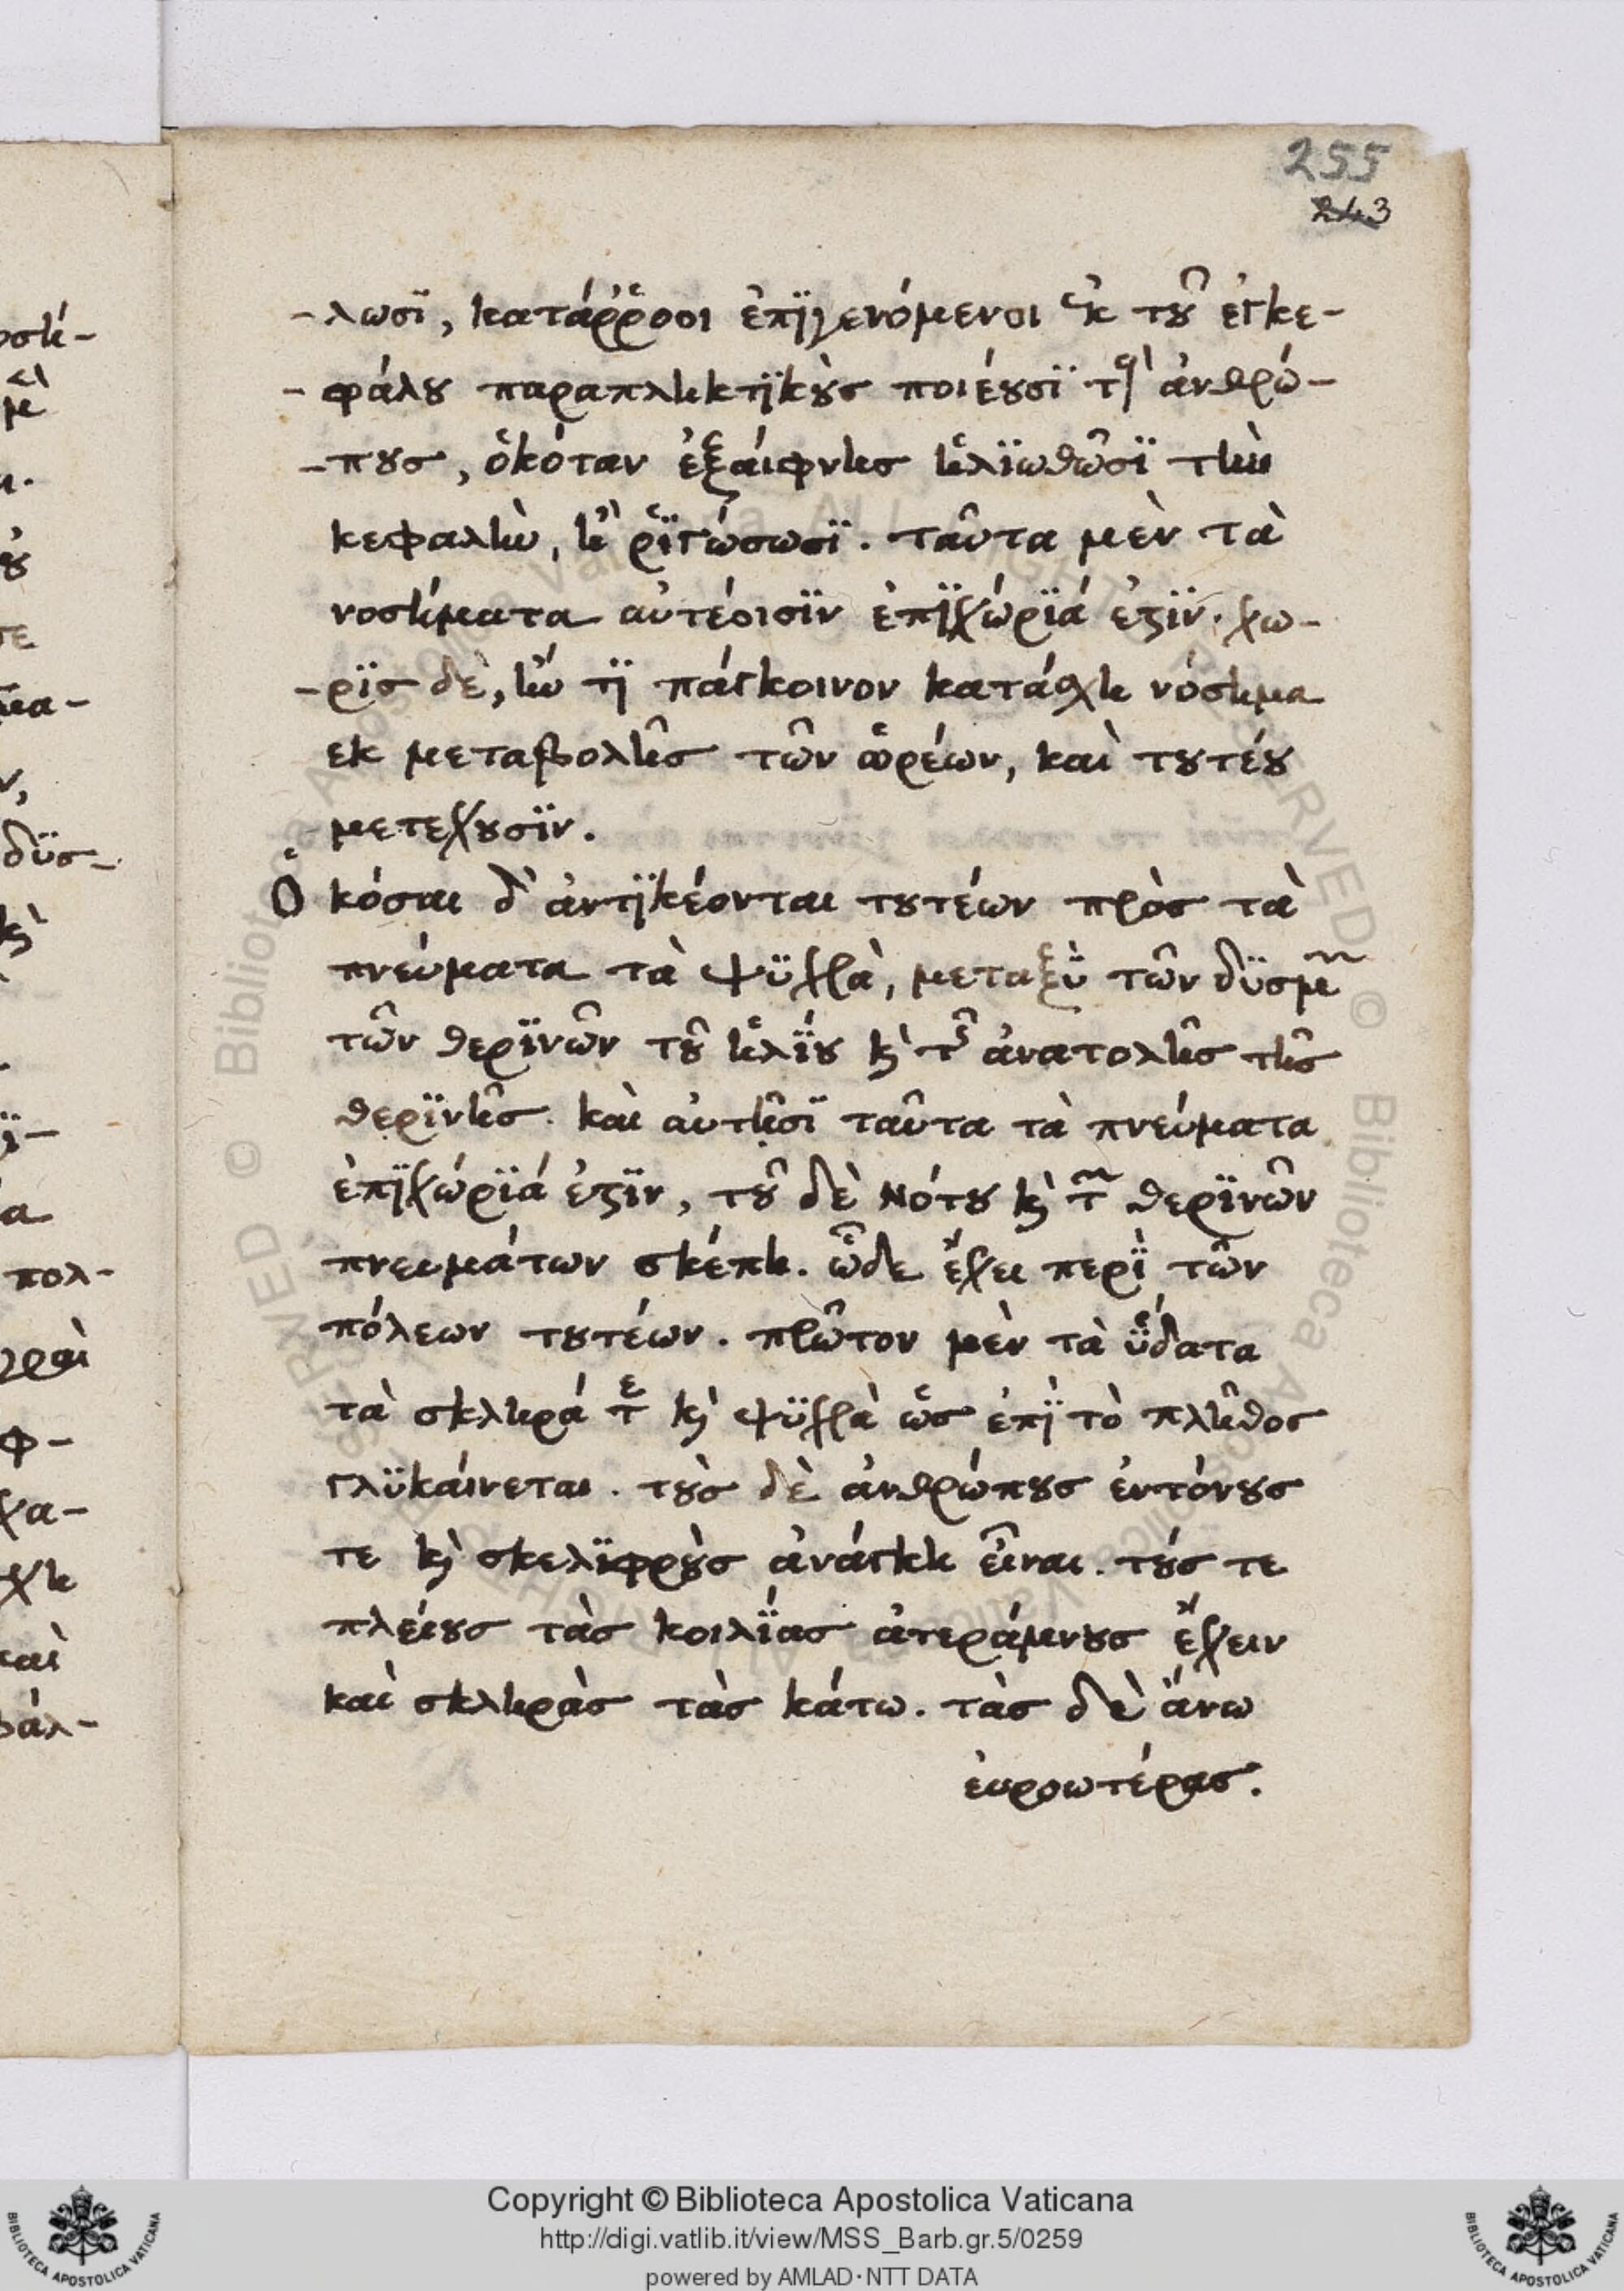 255
243
-λωσϊ, κατάῤῥοοι ἐπϊγενόμενοι ἐκ τοῦ ἐγκε-
-φάλου παραπληκτϊκοὺς ποιέουσϊ τοὺς ἀνθρώ-
-πους, ὁκόταν ἐξαίφνης ἡλϊωθῶσϊ τὴν
κεφαλὴν, ἢ ῥϊγώσωσϊ. ταῦτα μὲν τὰ
νοσήματα αὐτέοισϊν ἐπϊχώρϊά ἐστϊν. χω-
-ρϊς δὲ, ἤν τϊ πάγκοινον κατάσχη νόσημα
εκ μεταβολῆς τῶν ὡρέων, καὶ τουτέου
μετεχουσϊν.
Ὁκόσαι δ' ἀντϊκέονται τουτέων πρὸς τὰ
πνεύματα τὰ ψϋχρὰ, μεταξὺ τῶν δϋσμέων
τῶν θερϊνῶν τοῦ ἡλΐου καὶ τῆς ἀνατολῆς τῆς
θερϊνῆς. καὶ αὐτῆσϊ ταῦτα τὰ πνεύματα
ἐπϊχώρϊά ἐστϊν, τοῦ δὲ Νότου καὶ τῶν θερϊνῶν
πνευμάτων σκέπη. ὧδε ἔχει περὶ τῶν
πόλεων τουτέων. πρῶτον μὲν τὰ ὕδατα
τὰ σκληρά τε καὶ ψϋχρὰ ὡς ἐπῒ τὸ πλῆθος
γλϋκαίνεται. τοὺς δὲ ἀνθρώπους ἐντόνους
τε καὶ σκελϊφροὺς ἀνάγκη εἶναι. τούς τε
πλείους τὰς κοιλΐας ἀτεράμνους ἔχειν
καὶ σκληρὰς τὰς κάτω. τὰς δὲ ἄνω
ἐυροωτέρας.
Copyright © Biblioteca Apostolica Vaticana
http://digi.vatlib.it/view/MSS_Barb.gr.5/0259
powered by AMLAD·NTT DATA